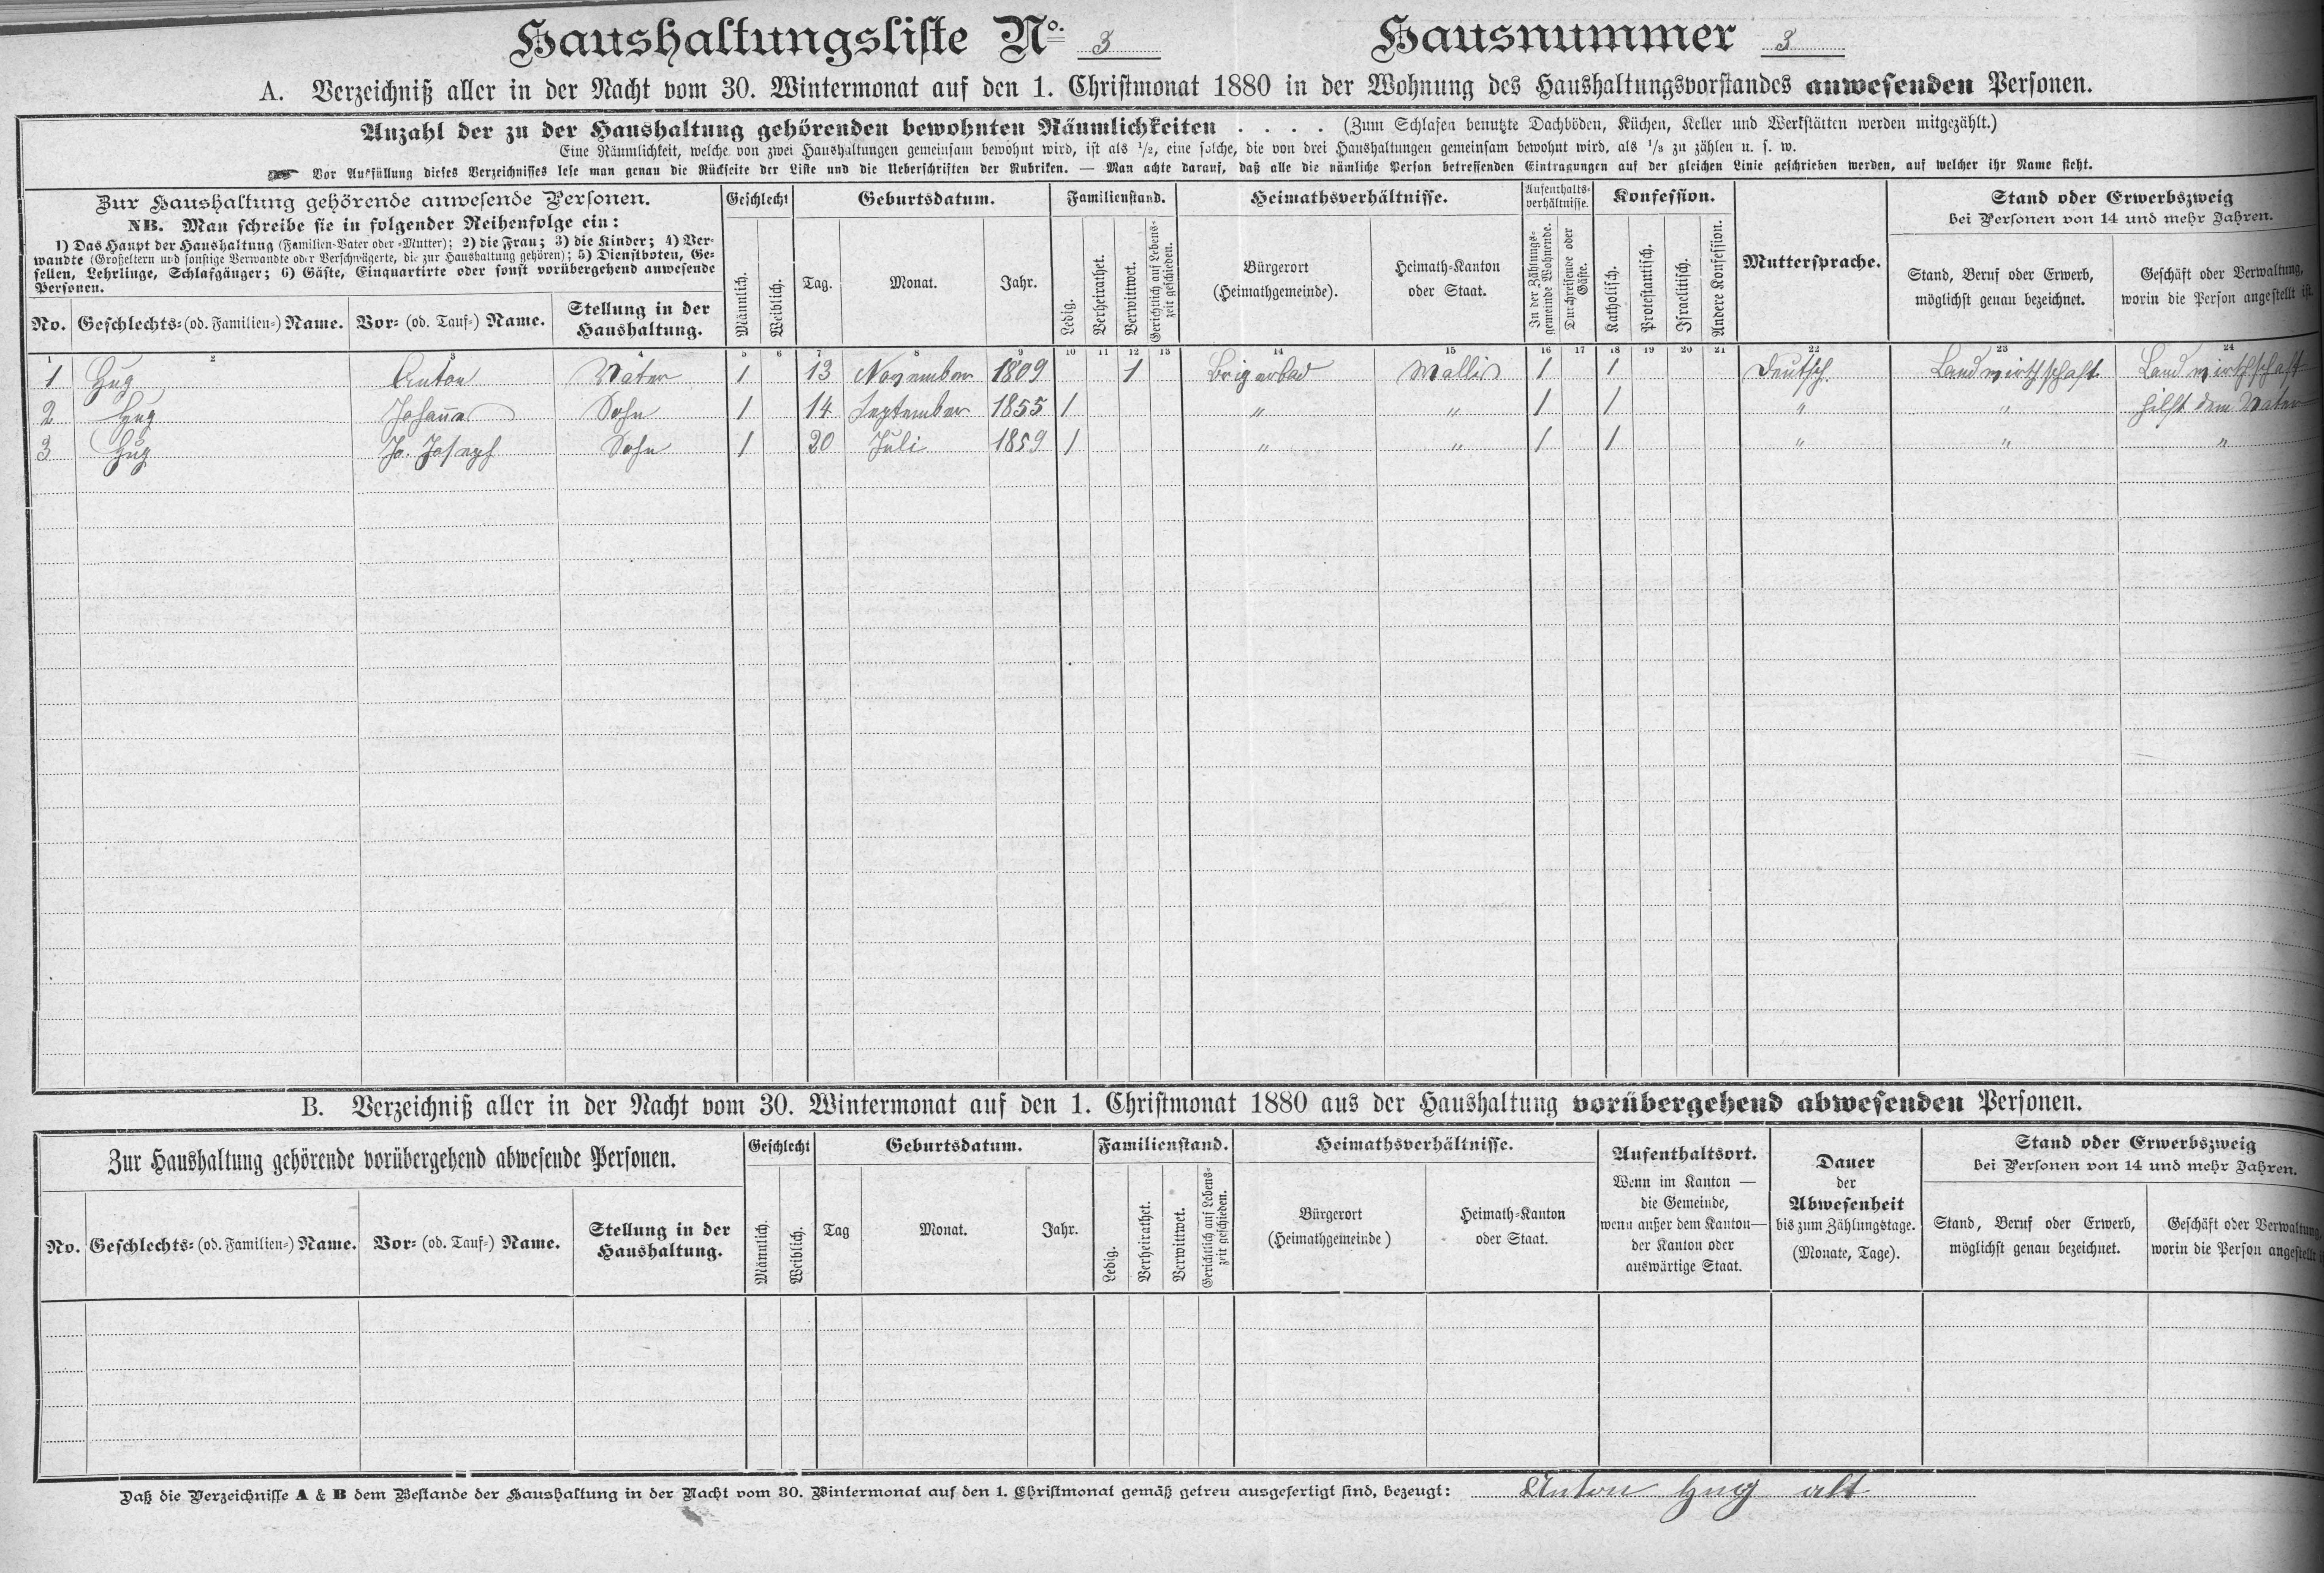 Haushaltungsliste No. 3 Hausnummer 3
A. Verzeichniß aller in der Nacht vom 30. Wintermonat auf den 1. Christmonat 1880 in der Wohnung des Haushaltungsvorstandes anwesenden Personen.
Anzahl der zu der Haushaltung gehörenden bewohnten Räumlichkeiten . . . . (Zum Schlafen benutzte Dachböden, Küchen, Keller und Werkstätten werden mitgezählt.)
Eine Räumlichkeit, welche von zwei Haushaltungen gemeinsam bewohnt wird, ist als 1/2, eine solche, die von drei Haushaltungen gemeinsam bewohnt wird, als 1/3 zu zählen u. s. w.
Vor Ausfüllung dieses Verzeichnisses lese man genau die Rückseite der Liste und die Ueberschriften der Rubriken. — Man achte darauf, daß alle die nämliche Person betreffenden Eintragungen auf der gleichen Linie geschrieben werden, auf welcher ihr Name steht.
Zur Haushaltung gehörende anwesende Personen.
NB. Man schreibe sie in folgender Reihenfolge ein:
1) Das Haupt der Haushaltung (Familien-Vater oder -Mutter); 2) die Frau; 3) die Kinder; 4) Ver-
wandte (Großeltern und sonstige Verwandte oder Verschwägerte, die zur Haushaltung gehören); 5) Dienstboten, Ge-
sellen, Lehrlinge, Schlafgänger; 6) Gäste, Einquartirte oder sonst vorübergehend anwesende
Personen.
No. Geschlechts- (od. Familien-) Name. Vor- (od. Tauf-) Name. Stellung in der
Haushaltung.
Geschlecht
Männlich.
Weiblich.
Geburtsdatum.
Tag. Monat. Jahr.
Familienstand.
Ledig.
Verheirathet.
Verwittwet.
Gerichtlich auf Lebens-
zeit geschieden.
Heimathsverhältnisse.
Bürgerort
(Heimathgemeinde).
Heimath-Kanton
oder Staat.
Aufenthalts-
verhältnisse.
In der Zählungs-
gemeinde Wohnende.
Durchreisende oder
Gäste.
Konfession.
Katholisch.
Protestantisch.
Israelitisch.
Andere Konfession.
Muttersprache.
Stand oder Erwerbszweig
bei Personen von 14 und mehr Jahren.
Stand, Beruf oder Erwerb,
möglichst genau bezeichnet.
Geschäft oder Verwaltung,
worin die Person angestellt ist.
1 2 3 4 5 6 7 8 9 10 11 12 13 14 15 16 17 18 19 20 21 22 23 24
1 Hug Anton Vater 1 13 November 1809 1 Brigerbad Wallis 1 1 Deutsch. Landwirthschaft Landwirthschaft
2 Hug Johañes Sohn 1 14 September 1855 1 " " 1 1 " " hilft dem Vater
3 Hug Jo. Joseph Sohn 1 20 Juli 1859 1 " " 1 1 " " "
B. Verzeichniß aller in der Nacht vom 30. Wintermonat auf den 1. Christmonat 1880 aus der Haushaltung vorübergehend abwesenden Personen.
Zur Haushaltung gehörende vorübergehend abwesende Personen.
No. Geschlechts- (od. Familien-) Name. Vor- (od. Tauf-) Name. Stellung in der
Haushaltung.
Geschlecht
Männlich.
Weiblich.
Geburtsdatum.
Tag Monat. Jahr.
Familienstand.
Ledig.
Verheirathet.
Verwittwet.
Gerichtlich auf Lebens-
zeit geschieden.
Heimathsverhältnisse.
Bürgerort
(Heimathgemeinde)
Heimath-Kanton
oder Staat.
Aufenthaltsort.
Wenn im Kanton —
die Gemeinde,
wenn außer dem Kanton—
der Kanton oder
auswärtige Staat.
Dauer
der
Abwesenheit
bis zum Zählungstage.
(Monate, Tage).
Stand oder Erwerbszweig
bei Personen von 14 und mehr Jahren.
Stand, Beruf oder Erwerb,
möglichst genau bezeichnet.
Geschäft oder Verwaltung,
worin die Person angestellt
Daß die Verzeichnisse A & B dem Bestande der Haushaltung in der Nacht vom 30. Wintermonat auf den 1. Christmonat gemäß getreu ausgefertigt sind, bezeugt: Anton Hug alt